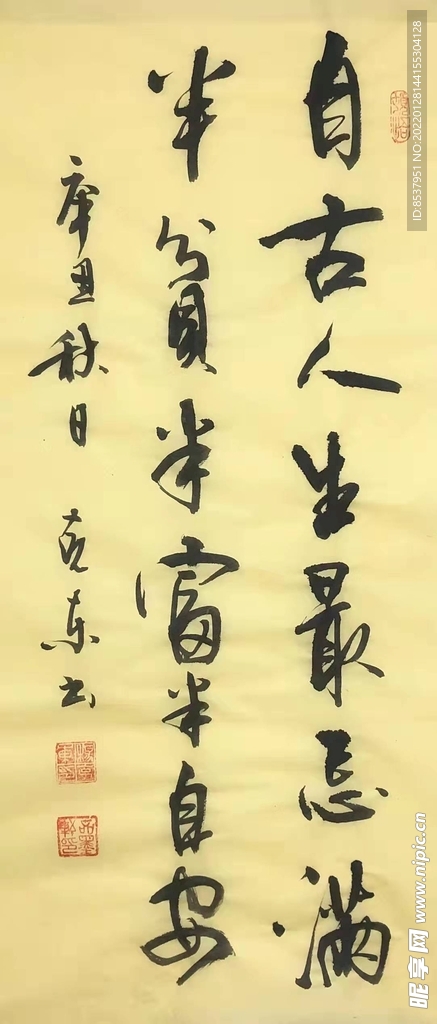 自古人生最忌满
半貧半富半自安
辛丑秋日 克东书
ID:8537951 NO:20220128144155304128
昵享网 www.nipic.cn